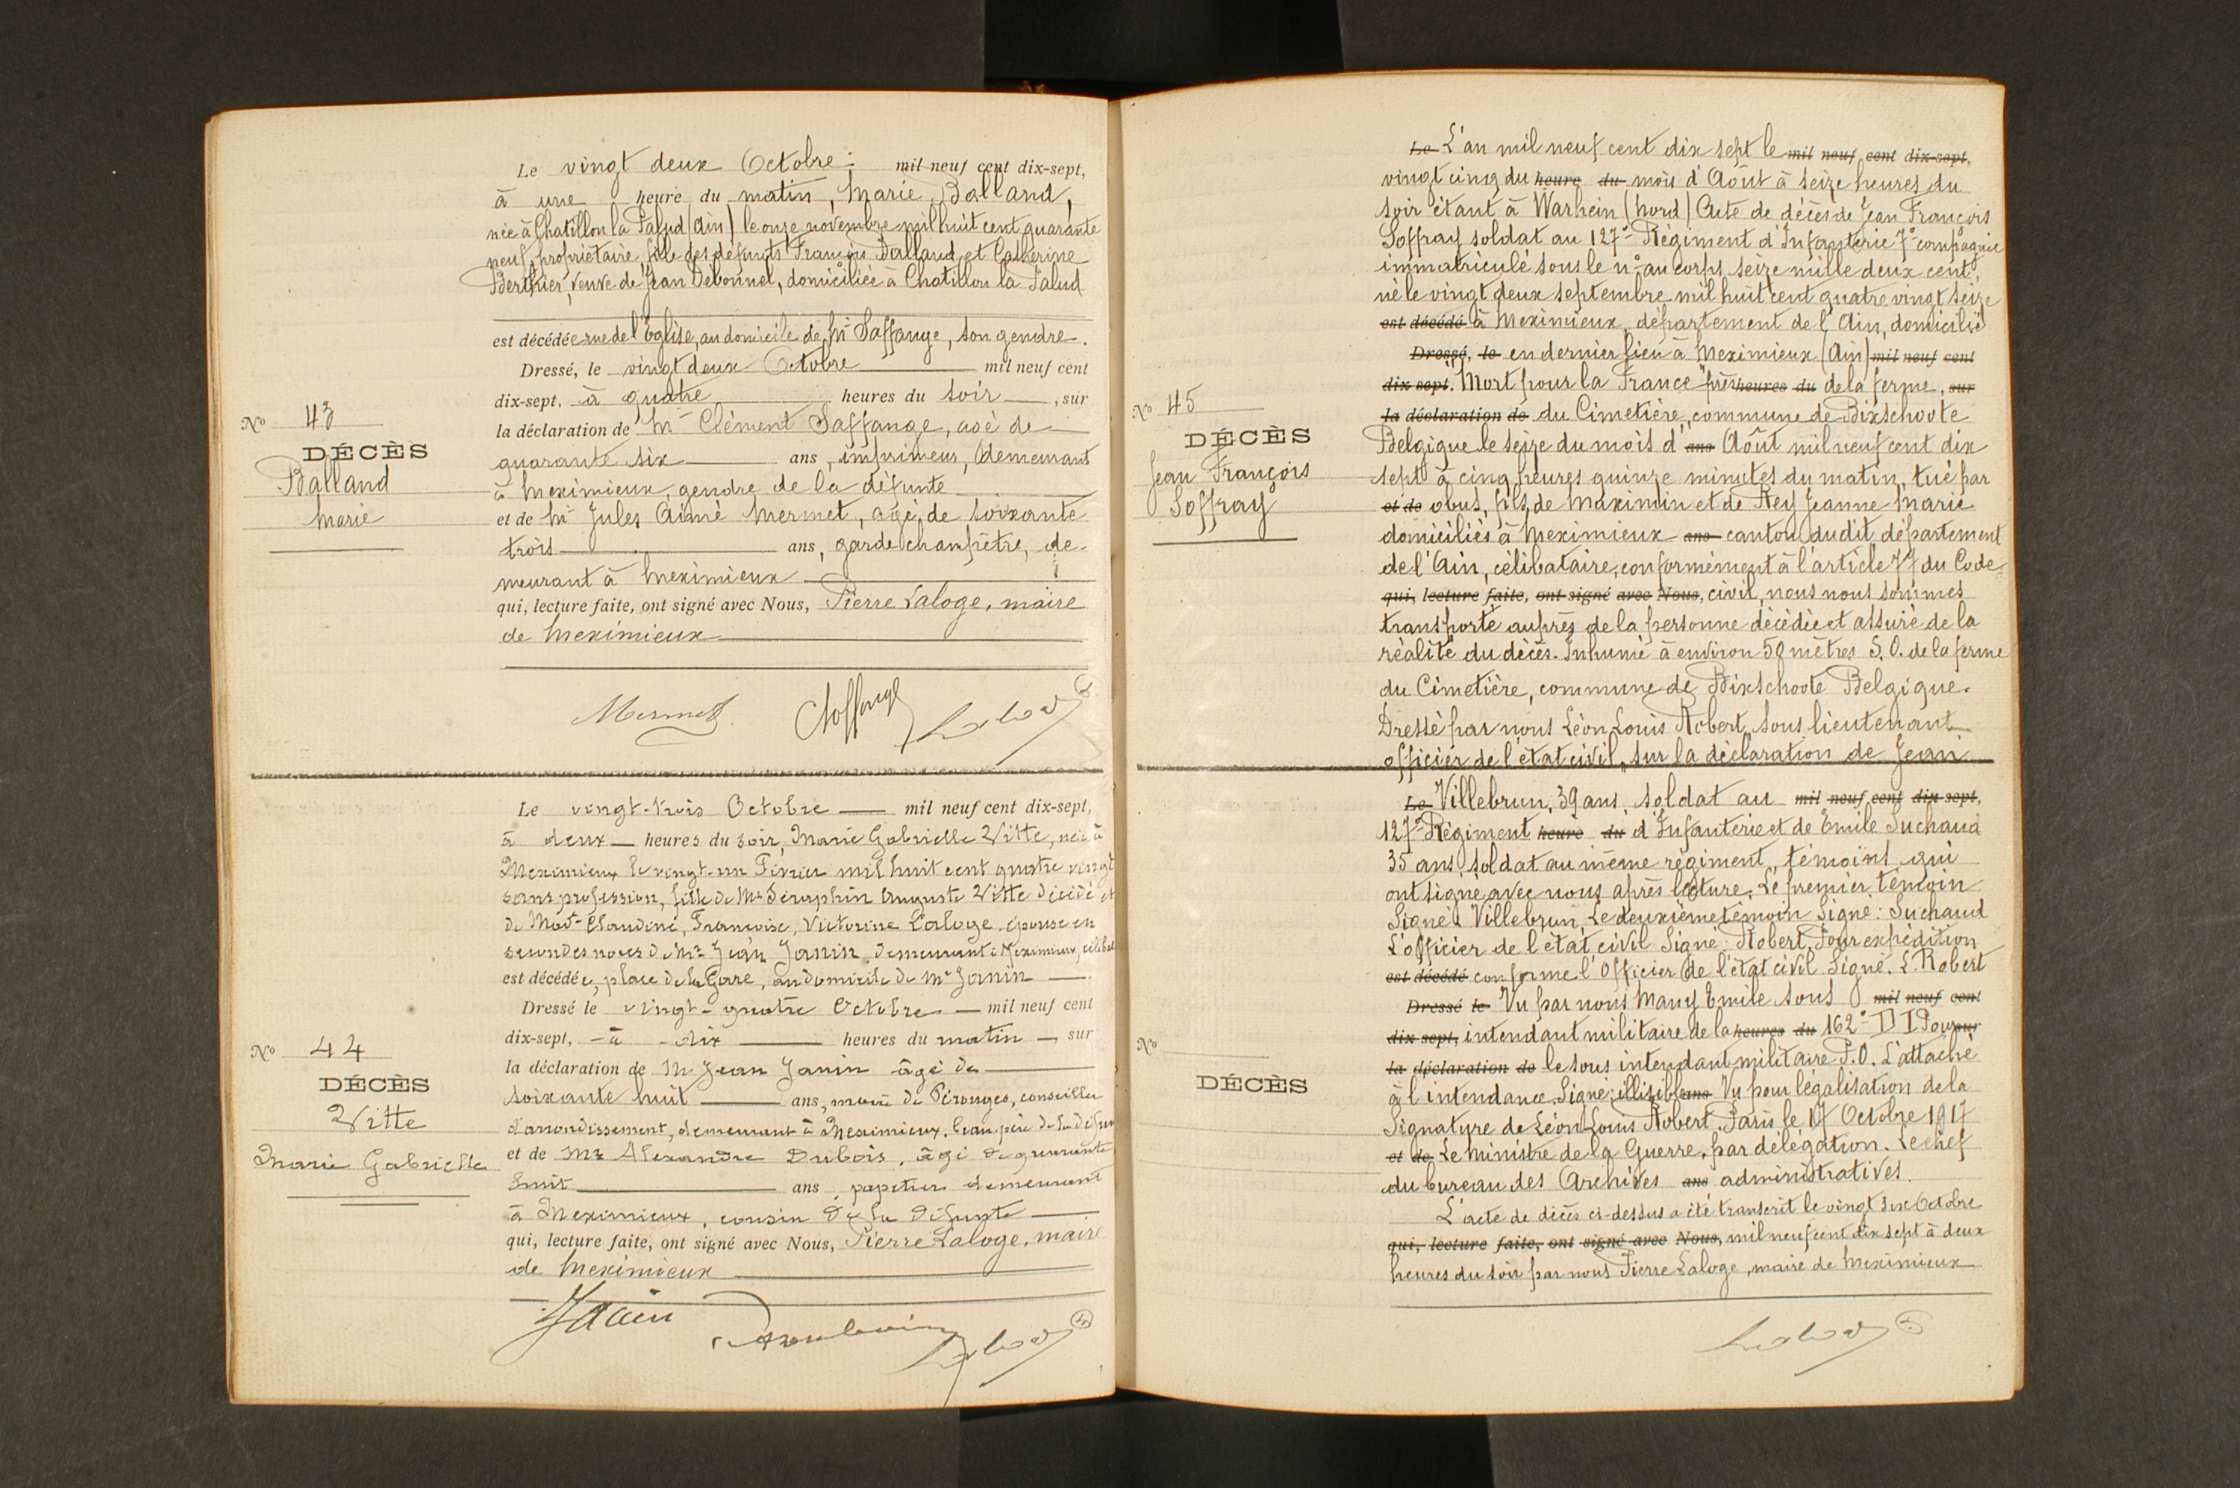 Le vingt deux Octobre mil neuf cent dix-sept,
à une heure du matin, Marie Balland,
née à Chatillon la Palud (Ain) le onze novembre mil huit cent quarante
neuf, propriétaire, fille des défunts François Balland et Catherine
Berthier, veuve de Jean Debonnel, domiciliée à Chatillon la Palud
est décédée rue de l'Église, au domicile de Mr Saffange, son gendre.
Dressé, le vingt deux Octobre mil neuf cent
dix-sept, à quatre heures du soir, sur
la déclaration de Mr Clément Saffange, agé de
quarante six ans, imprimeur, demeurant
à Meximieux, gendre de la défunte
et de Mr Jules Aimé Mermet, agé de soixante
trois ans, garde champêtre, de-
meurant à Meximieux
qui, lecture faite, ont signé avec Nous, Pierre Laloge, maire
de Meximieux
No 43
DÉCÈS
Balland
Marie
Mermet
Le vingt-trois Octobre mil neuf cent dix-sept,
à deux heures du soir, Marie Gabrielle Vitte, née à
Meximieux le vingt-un Février mil huit cent quatre vingt
sans profession, fille de Mr Séraphin Auguste Vitte décédé et
de Made Claudine, Françoise, Victorine Laloge, épouse en
secondes noces de Mr Jean Janin, demeurant à Meximieux,
est décédée, place de la Gare, au domicile de Mr Janin
Dressé le vingt-quatre Octobre mil neuf cent
dix-sept, à dix heures du matin sur
la déclaration de Mr Jean Janin âgé de
soixante huit ans, maire de Pérouges, conseiller
d'arrondissement, demeurant à Meximieux, beau père de la défun
et de Mr Alexandre Dubois, âgé de quarante
huit ans, papetier demeurant
à Meximieux, cousin de la défunte
qui, lecture faite, ont signé avec Nous, Pierre Laloge, maire
de Meximieux
No 44
DÉCÈS
Vitte
Marie Gabrielle
Janin
Le L'an mil neuf cent dix sept le mil neuf cent dix-sept,
vingt cinq du heure du mois d'Août à seize heures du
soir étant à Warhein (Nord) Acte de décès de Jean François
Soffray soldat au 127e Régiment d'Infanterie 7e compagnie
immatriculé sous le no au corps seize mille deux cent,
né le vingt deux septembre mil huit cent quatre vingt seize
est décédé à Meximieux, département de l'Ain, domicilié
Dressé, le en dernier lieu à Meximieux (Ain) mil neuf cent
dix sept. "Mort pour la France" près heures du de la ferme, sur
la déclaration de du Cimetière, commune de Bixschoote
Belgique le seize du mois d' ans Août mil neuf cent dix
sept à cinq heures quinze minutes du matin, tué par
et de obus, fils de Maximin et de Rey Jeanne Marie
domiciliés à Meximieux ans canton dudit département
de l'Ain, célibataire, conformément à l'article 77 du Code
qui, lecture faite, ont signé avec Nous, civil, nous nous sommes
transporté auprès de la personne décédée et assuré de la
réalité du décès. Inhumé à environ 50 mètres S.O. de la ferme
du Cimetière, commune de Bixschoote Belgique.
Dressé par nous Léon Louis Robert, sous lieutenant
officier de l'état civil, sur la déclaration de Jean
No 45
DÉCÈS
Jean François
Soffray
Le Villebrun, 39 ans, soldat au mil neuf cent dix sept,
127e Régiment heure du d'Infanterie et de Emile Suchaud
35 ans, soldat au même régiment, témoins qui
ont signé avec nous après lecture. Le premier témoin
Signé: Villebrun, Le deuxième témoin Signé: Suchaud
L'officier de l'état civil Signé: Robert, Pour expédition
est décédé conforme l'Officier de l'état civil Signé. L. Robert
Dressé le Vu par nous Many Emile sous mil neuf cent
dix sept, intendant militaire de la heures du 162e D I Pour sur
la déclaration de le sous intendant militaire P.O. L'attaché
à l'intendance. Signé: illisible ans Vu pour légalisation de la
Signature de Léon Louis Robert. Paris le 17 Octobre 1917
et de Le Ministre de la Guerre, par délégation. Le chef
du bureau des Archives ans administratives.
L'acte de décès ci-dessus a été transcrit le vingt six Octobre
qui, lecture faite, ont signé avec Nous, mil neuf cent dix sept à deux
heures du soir par nous Pierre Laloge, maire de Meximieux
No
DÉCÈS